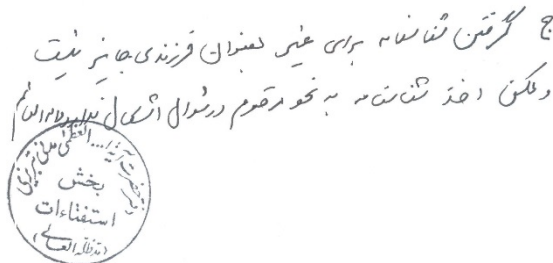 ج گرفتن شناسنامه برای غیر بعنوان فرزندی جایز نیست
ولکن اخذ شناسنامه به نحو مرقوم در سئوال اشکال ندارد والله العالم
دفتر حضرت آیة ا... العظمی مدنی تبریزی
بخش
استفتاءات
(مدظله العالی)